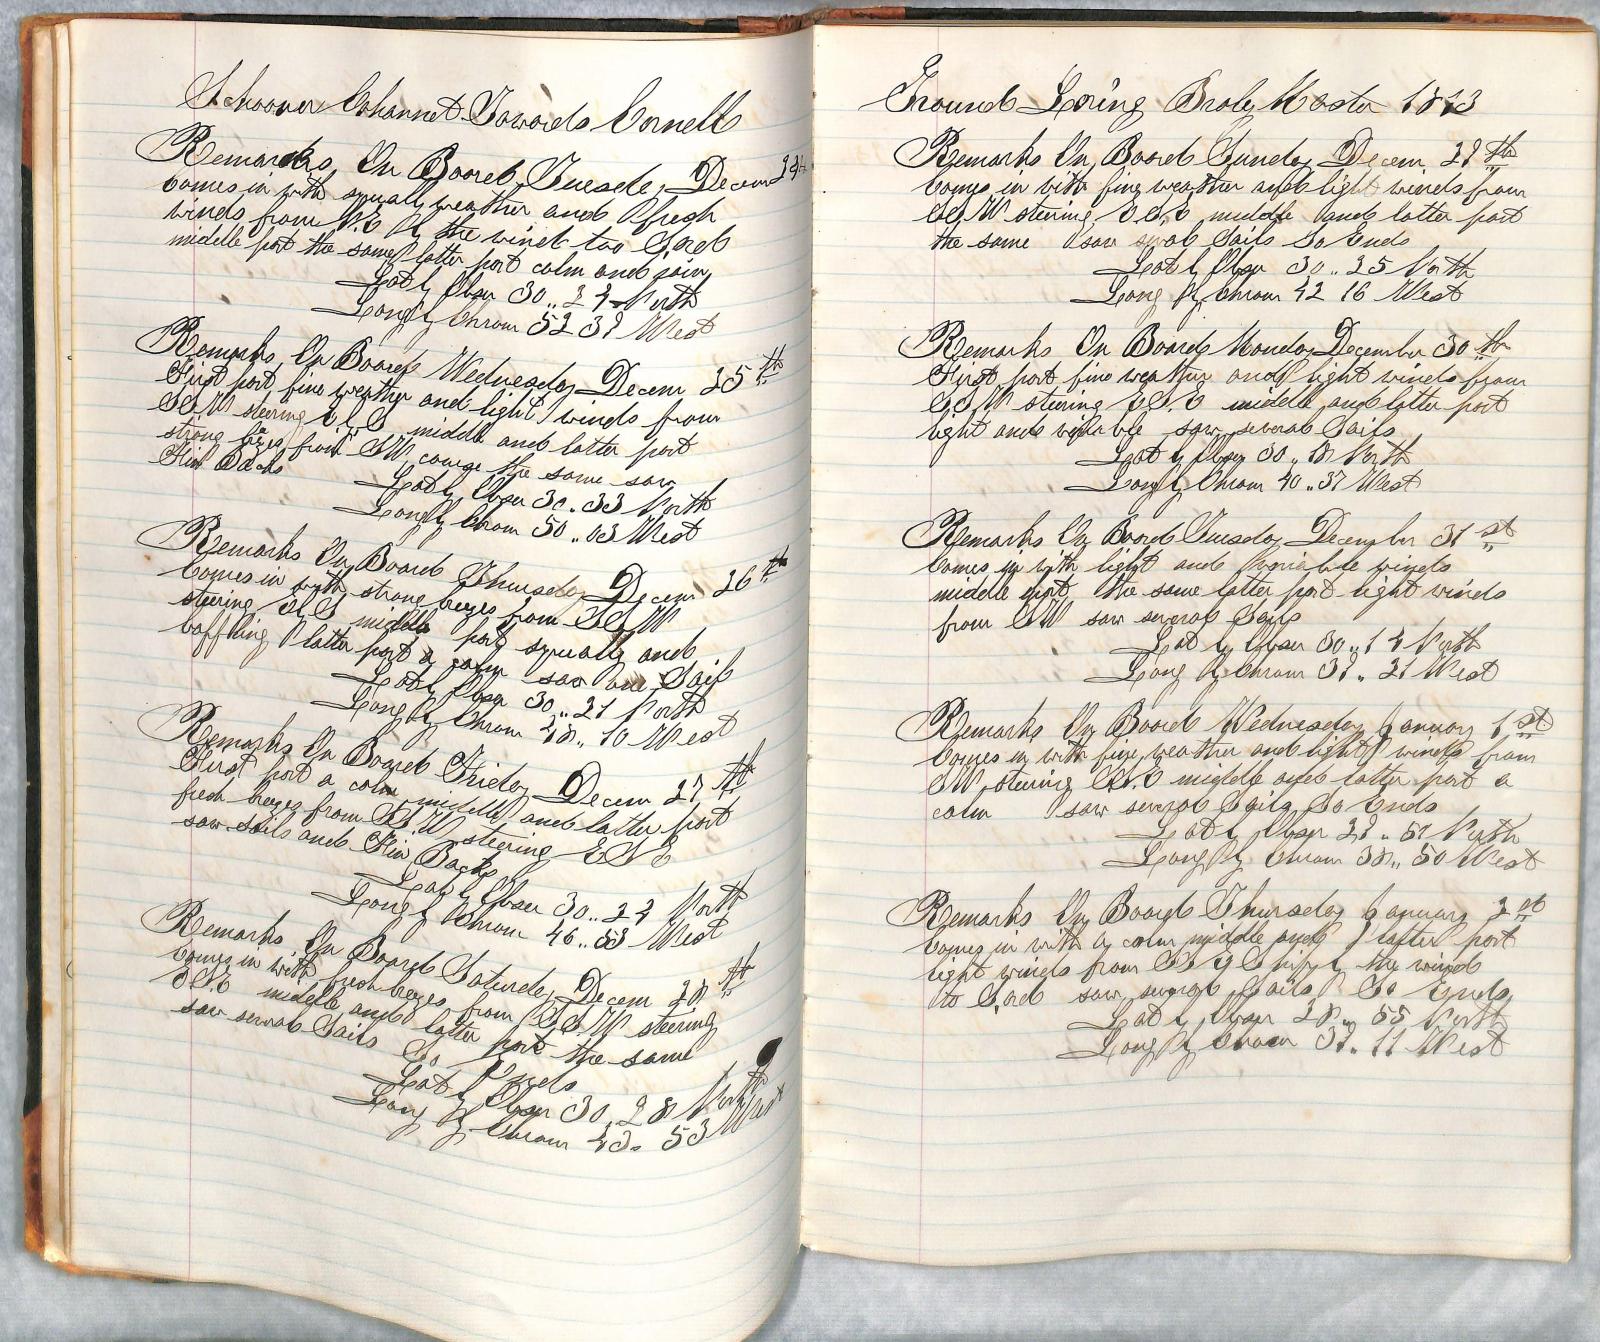 Schooner Cohannet Towards Cornell
Remarks On Board Tuesday Decem 24th
Comes in with squally weather and fresh
winds from N.E By the wind too Sard
middle part the same latter part calm and rainy
Lat by Obser 30..24 North
Long By Chrom 52 39 West
Remarks On Board Wednesday Decem 25th
First part fine weather and light winds from
SSW steering middle and latter part
strong brezes from SW course the same saw
Fin Backs
Lat by Obser 30..33 North
Long By Chrom 50..03 West
Remarks On Board Thursday Decem 26th
Comes in with strong brezes from SSW
steering middle part squally and
baffling latter part a calm saw one Sail
Lat by Obser 30..21 North
Long By Chrom 48..10 West
Remarks On Board Friday Decem 27th
First part a calm middle and latter part
fresh brezes from S.S.W steering ESE
saw sails and Fin Backs
Lat by Obser 30..24 North
Long By Chrom 46..53 West
Remarks On Board Saturday Decem 28th
Comes in with fresh brezes from S.S.W steering
E.S.E middle and latter part the same
saw several Sails So Ends
Lat by Obser 30..28 North
Long By Chrom 43..53 West
Ground Loring Braley Master 1873
Remarks On Board Sunday Decem 29th
Comes in with fine weather and light winds from
steering E.S.E middle and latter part
the same saw several Sails So Ends
Lat by Obser 30..25 North
Long By Chrom 42 16 West
Remarks On Board Monday December 30th
First part fine weather and light winds from
S.S.W steering E.S.E middle and latter part
light and variable saw several Sails
Lat by Obser 30..18 North
Long By Chrom 40..37 West
Remarks On Board Tuesday December 31st
Comes in with light and variable winds
middle part the same latter part light winds
from SW saw several Sails
Lat by Obser 30..14 North
Long By Chrom 39..21 West
Remarks On Board Wednesday January 1st
Comes in with fine weather and light winds from
SW steering middle and latter part a
calm saw several Sails So Ends
Lat by Obser 29..51 North
Long By Chrom 38..50 West
Remarks On Board Thursday January 2st
Comes in with a calm middle and latter part
light winds from S By E Ship by the wind
to Sard saw several Sails So Ends
Lat by Obser 28..55 North
Long By Chrom 39..11 West